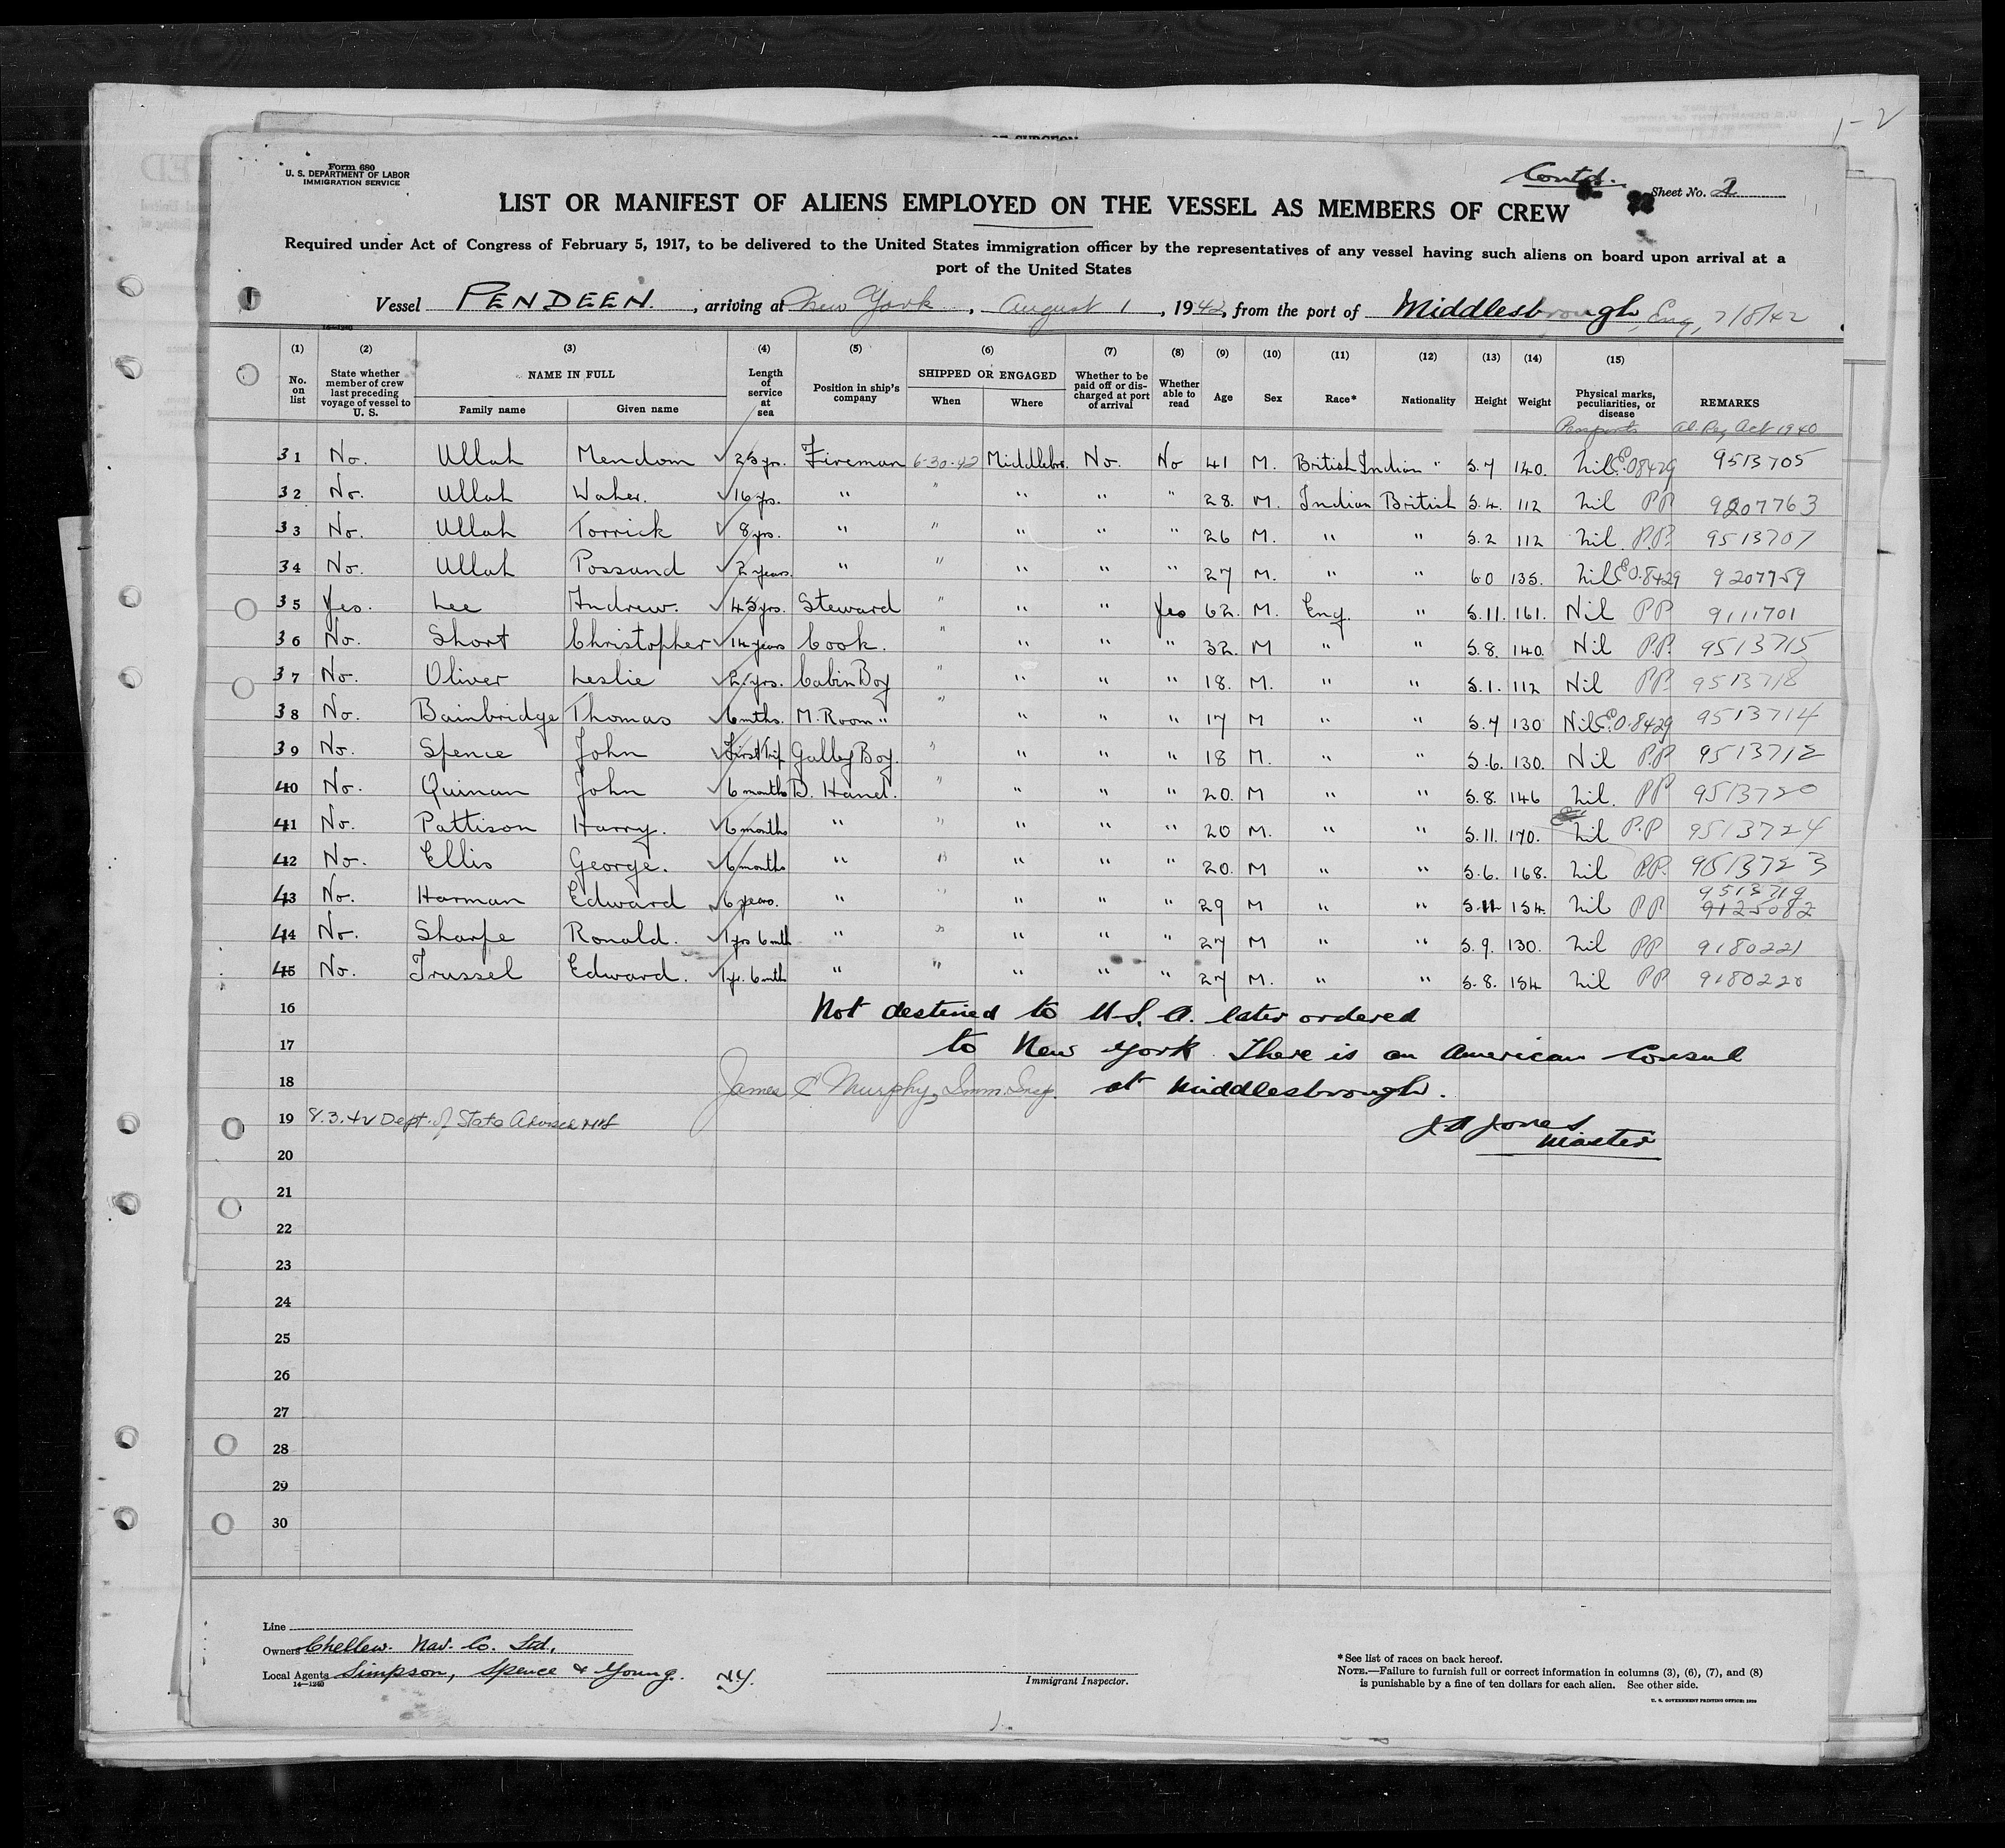 1-2
Form 680
U. S. DEPARTMENT OF LABOR
IMMIGRATION SERVICE
Contd.
Sheet No. 2
LIST OR MANIFEST OF ALIENS EMPLOYED ON THE VESSEL AS MEMBERS OF CREW
Required under Act of Congress of February 5, 1917, to be delivered to the United States immigration officer by the representatives of any vessel having such aliens on board upon arrival at a
port of the United States
Vessel PENDEEN. , arriving at New York , August 1 , 1942, from the port of Middlesbrough, Eng, 7/8/42
14-1240
(1) (2) (3) (4) (5) (6) (7) (8) (9) (10) (11) (12) (13) (14) (15)
No. on list | State whether member of crew last preceding voyage of vessel to U. S. | NAME IN FULL Family name Given name | Length of service at sea | Position in ship's company | SHIPPED OR ENGAGED When Where | Whether to be paid off or discharged at port of arrival | Whether able to read | Age | Sex | Race* | Nationality | Height | Weight | Physical marks, peculiarities, or disease | REMARKS
Passports Al. Reg Act 1940
31 No. Ullah Mendom 25 yrs. Fireman 6-30-42 Middlebro. No. No 41 M. British Indian " 5.7 140. Nil E.O.8429 9513705
32 No. Ullah Waher. 16 yrs. " " " " " 28. M. Indian British 5.4. 112 Nil PP 9207763
33 No. Ullah Torrick 8 yrs. " " " " " 26 M. " " 5.2 112 Nil. P.P. 9513707
34 No. Ullah Possand 2 years. " " " " " 27 M. " " 6.0 135. Nil E.O.8429 9207759
35 Yes. Lee Andrew. 45 yrs. Steward " " " Yes 62. M. Eng. " 5.11. 161. Nil PP 9111701
36 No. Short Christopher 14 years Cook. " " " " 32. M " " 5.8. 140. Nil P.P. 9513715
37 No. Oliver Leslie 2 yrs. Cabin Boy " " " " 18. M. " " 5.1. 112 Nil PP. 9513718
38 No. Bainbridge Thomas 6 mths. M. Room " " " " " 17 M " " 5.7 130 Nil E.O.8429 9513714
39 No. Spence John First Trip Galley Boy. " " " " 18 M. " " 5.6. 130. Nil P.P. 9513712
40 No. Quinan John 6 months D. Hand. " " " " 20. M " " 5.8. 146 Nil. PP 9513720
41 No. Pattison Harry. 6 months " " " " " 20 M. " " 5.11. 170. Nil P.P 9513724
42 No. Ellis George. 6 months " " " " " 20. M " " 5.6. 168. Nil P.P. 9513723
9513719
43 No. Harman Edward 6 years. " " " " " 29 M " " 5.11 154. Nil PP 9125082
44 No. Sharpe Ronald. 1 yrs 6 mth " " " " " 27 M " " 5.9. 130. Nil PP 9180221
45 No. Trussel Edward. 1 yr. 6 mth " " " " " 27 M. " " 5.8. 154 Nil PP 9180220
16 Not destined to U.S.A. later ordered
17 to New York There is an American Consul
18 James E Murphy, Imm. Insp. at Middlesbrough.
19 8.3.42 Dept. of State
J A Jones
Master
20
21
22
23
24
25
26
27
28
29
30
Line
Owners Chellew. Nav. Co. Ltd.,
Local Agents Simpson, Spence & Young. N.Y.
14-1240
Immigrant Inspector.
* See list of races on back hereof.
NOTE.—Failure to furnish full or correct information in columns (3), (6), (7), and (8)
is punishable by a fine of ten dollars for each alien. See other side.